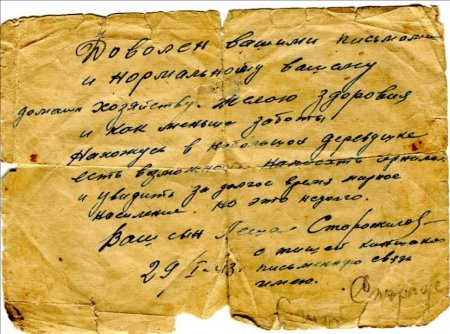 Доволен вашими письмами
и нормальному вашему
домашн хозяйству. Желаю здоровия
и как меньше заботы
Нахожусь в небольшой деревушке
есть возможность написать чернилом
и увидить за долгое время мирное
население. но это недолго.
Ваш сын Леша Сторожилов
с тищей
29/I-43. письменную связь
имею.